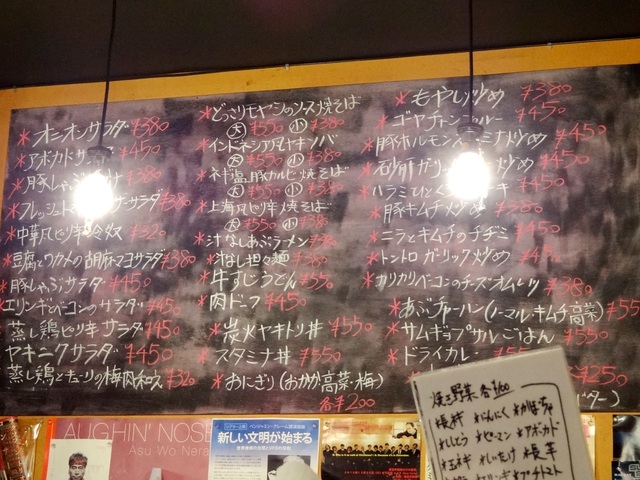 オニオンサラダ ¥380
アボカドサラダ ¥450
豚しゃぶ ¥380
サラダ ¥380
中華風ピリ辛冷奴 ¥320
豆腐とワカメの胡麻マヨサラダ ¥380
豚しゃぶサラダ ¥450
エリンギとベーコンのサラダ ¥450
蒸し鶏ピリ辛サラダ ¥450
ヤキニクサラダ ¥450
蒸し鶏とキューリの梅肉和え ¥320
どっさりモヤシのソース焼そば
大 ¥550 小 ¥380
インドネシア風ヤキソバ
大 ¥550 小 ¥380
ネギ塩豚カルビ焼そば
大 ¥550 小 ¥380
上海風ピリ辛焼そば
大 ¥550 小 ¥380
汁なしあぶラーメン ¥380
汁なし担々麺 ¥380
牛すじうどん ¥550
肉ドーフ ¥450
炭火ヤキトリ丼 ¥550
スタミナ丼 ¥550
おにぎり(おかか・高菜・梅)
各¥200
もやし炒め ¥380
ゴーヤチャンプルー ¥450
豚ホルモン 炒め ¥450
砂肝ガーリック炒め ¥450
ハラミ ¥450
豚キムチ炒め ¥380
ニラとキムチのチヂミ ¥450
トントロガーリック炒め ¥450
カリカリベーコンのチーズオムレツ ¥380
あぶチャーハン(ノーマル・キムチ・高菜) ¥55
サムギョプサルごはん ¥550
ドライカレー
¥250
ター)
焼き野菜 各¥100
長ネギ にんにく かぼちゃ
ししとう ピーマン アボカド
玉ネギ しいたけ 長芋
エリンギ プチトマト
AUGHIN' NOSE
Asu Wo Nera
新しい文明が始まる